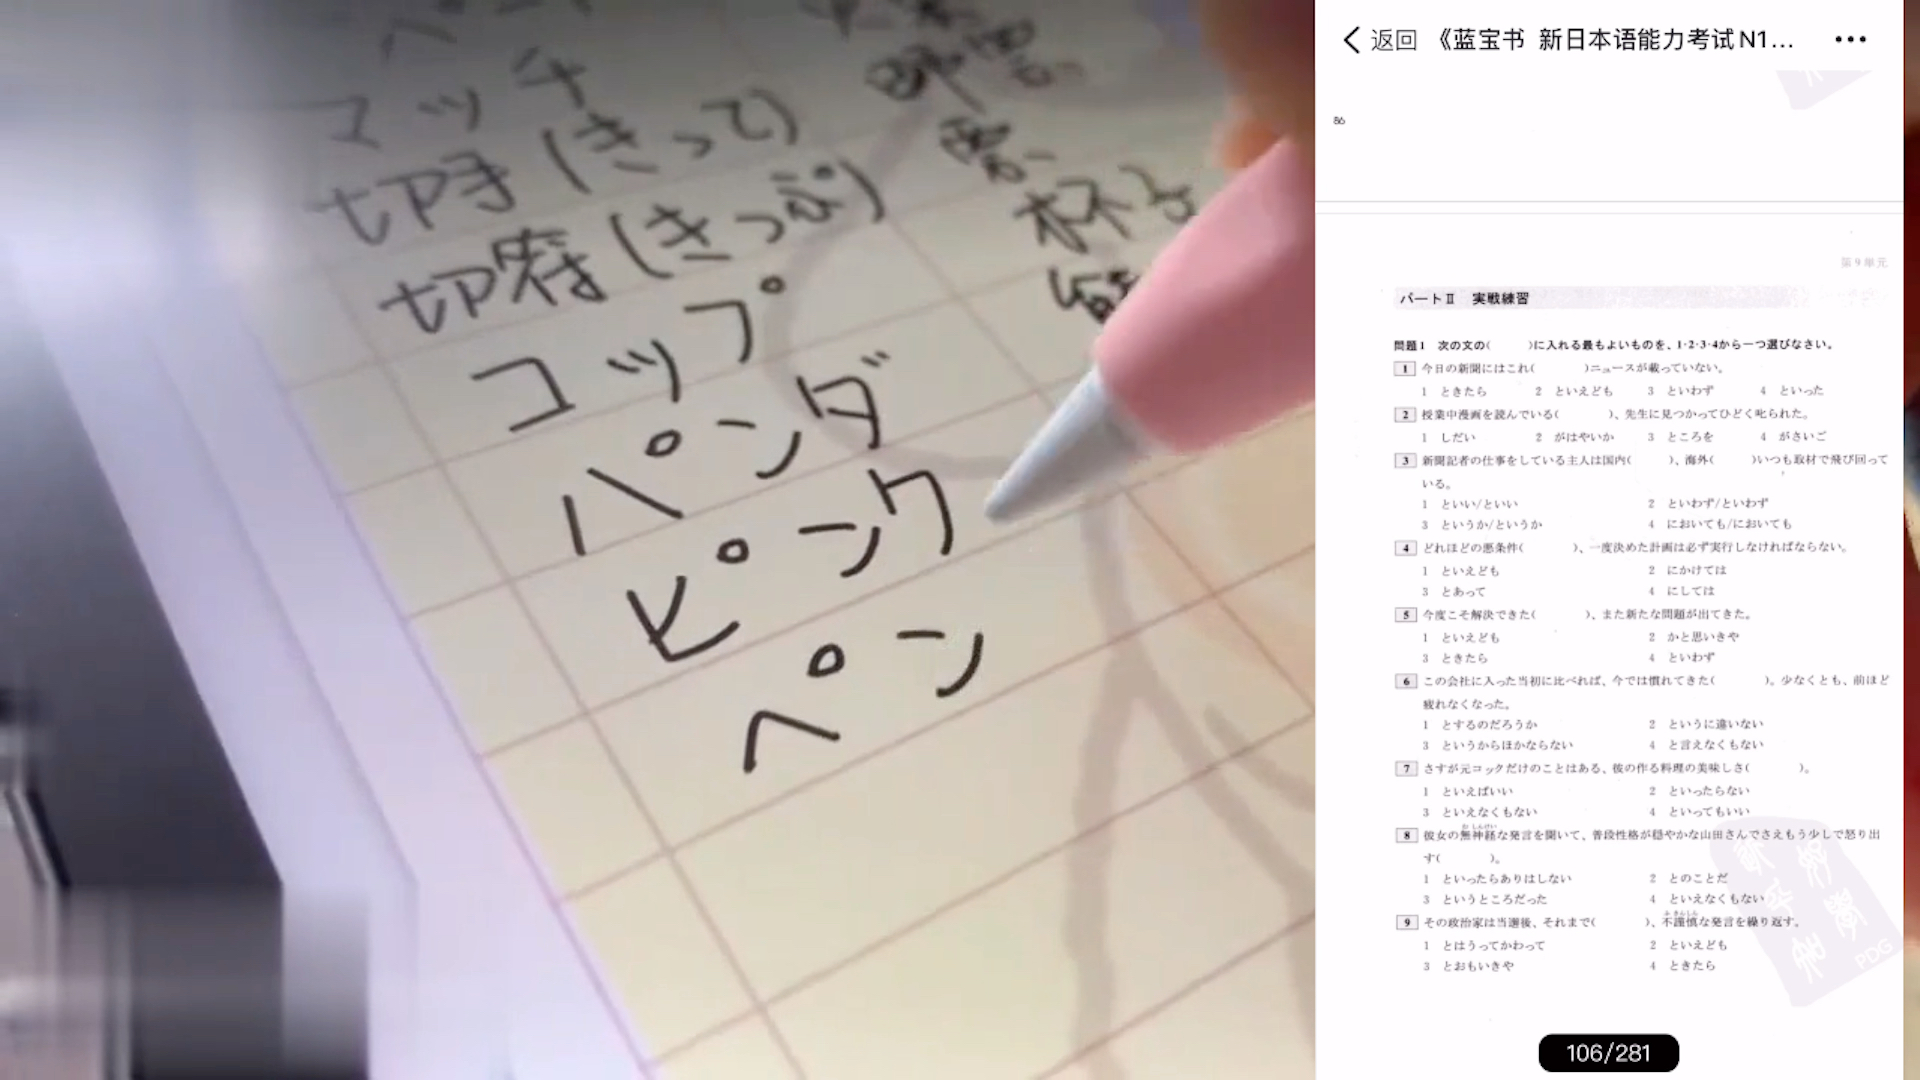 マッチ
切手(きって)
切符(きっぷ)
コップ
パンダ
ピンク
ペン
返回 《蓝宝书 新日本语能力考试N1...
86
第9単元
パートⅡ 実戦練習
問題1 次の文の( )に入れる最もよいものを、1・2・3・4から一つ選びなさい。
1 今日の新聞にはこれ( )ニュースが載っていない。
1 ときたら 2 といえども 3 といわず 4 といった
2 授業中漫画を読んでいる( )、先生に見つかってひどく叱られた。
1 しだい 2 がはやいか 3 ところを 4 がさいご
3 新聞記者の仕事をしている主人は国内( )、海外( )いつも取材で飛び回って
いる。
1 といい/といい 2 といわず/といわず
3 というか/というか 4 においても/においても
4 どれほどの悪条件( )、一度決めた計画は必ず実行しなければならない。
1 といえども 2 にかけては
3 とあって 4 にしては
5 今度こそ解決できた( )、また新たな問題が出てきた。
1 といえども 2 かと思いきや
3 ときたら 4 といわず
6 この会社に入った当初に比べれば、今では慣れてきた( )。少なくとも、前ほど
疲れなくなった。
1 とするのだろうか 2 というに違いない
3 というからほかならない 4 と言えなくもない
7 さすが元コックだけのことはある、彼の作る料理の美味しさ( )。
1 といえばいい 2 といったらない
3 といえなくもない 4 といってもいい
8 彼女の無神経な発言を聞いて、普段性格が穏やかな山田さんでさえもう少しで怒り出
す( )。
1 といったらありはしない 2 とのことだ
3 というところだった 4 といえなくもない
9 その政治家は当選後、それまで( )、不謹慎な発言を繰り返す。
1 とはうってかわって 2 といえども
3 とおもいきや 4 ときたら
PDG
106/281